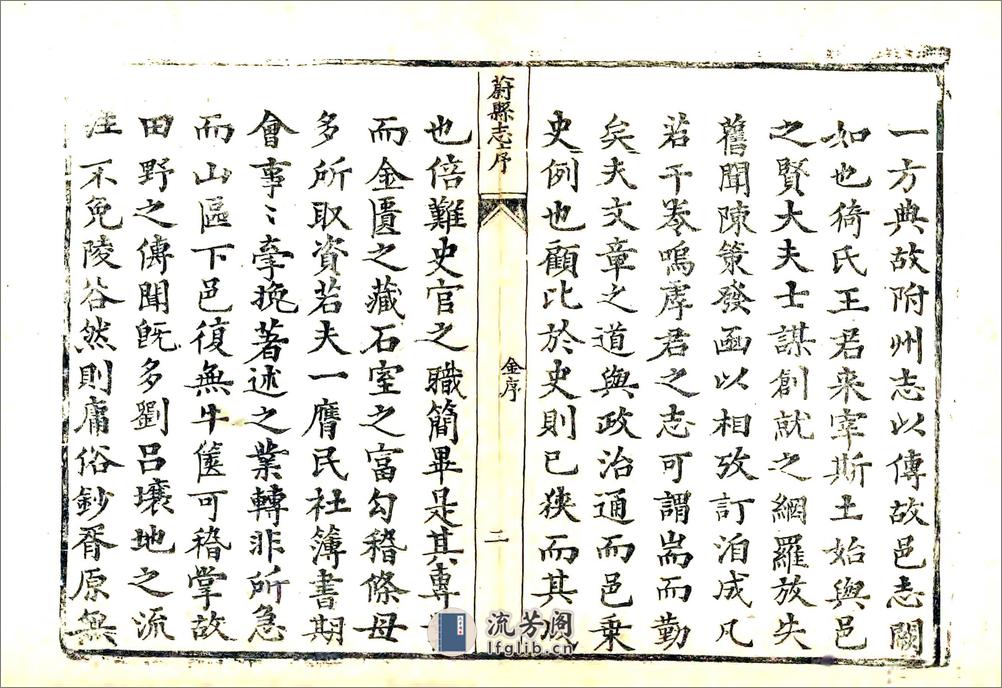 一方典故附州志以傳故邑志闕
如也猗氏王君来宰斯土始與邑
之賢大夫士謀創就之網羅放失
舊聞陳策發函以相攷訂洎成凡
若干卷嗚虖君之志可謂耑而勤
矣夫文章之道與政治通而邑乗
史例也顧比於史則已狹而其
蔚縣志序
金序
二
也倍難史官之職簡畢是其專
而金匱之藏石室之富勾稽條毋
多所取資若夫一膺民社簿書期
會事〻牽挽著述之業轉非所急
而山區下邑復無牛篋可稽掌故
田野之傳聞旣多劉呂壤地之流
注不免陵谷然則庸俗鈔胥原無
流芳阁
lfglib.cn